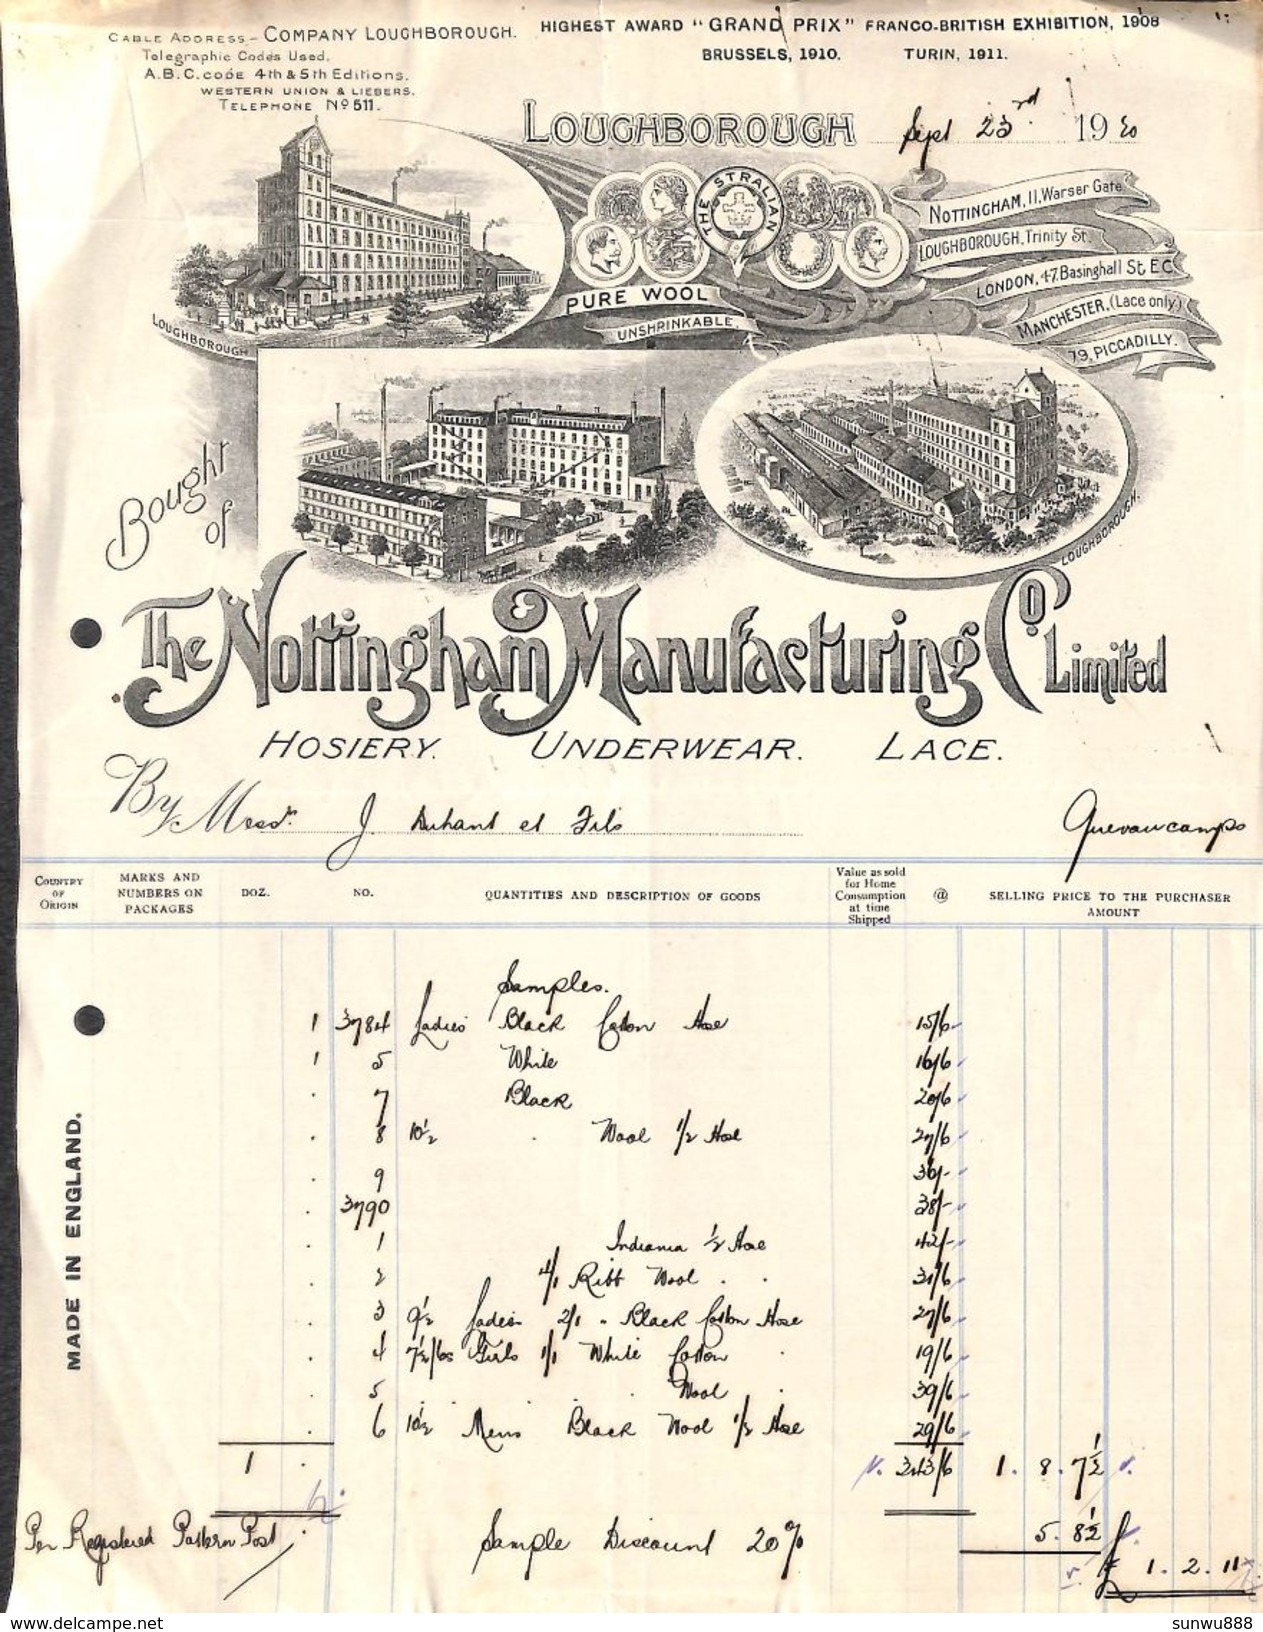 CABLE ADDRESS - COMPANY LOUGHBOROUGH.
Telegraphic Codes Used.
A.B.C. code 4th & 5th Editions.
WESTERN UNION & LIEBERS.
TELEPHONE No 511.
HIGHEST AWARD "GRAND PRIX" FRANCO-BRITISH EXHIBITION, 1908
BRUSSELS, 1910. TURIN, 1911.
LOUGHBOROUGH Sept 23rd 1920
THE STRALIAN
PURE WOOL
UNSHRINKABLE.
NOTTINGHAM, 11, Warser Gate
LOUGHBOROUGH, Trinity St.
LONDON, 47, Basinghall St. E.C.
MANCHESTER, (Lace only)
79, PICCADILLY.
LOUGHBOROUGH
LOUGHBOROUGH.
Bought of
The Nottingham Manufacturing Co. Limited
HOSIERY. UNDERWEAR. LACE.
By Messrs. J. Duhant et Fils Quevaucamps
COUNTRY OF ORIGIN
MARKS AND NUMBERS ON PACKAGES
DOZ.
NO.
QUANTITIES AND DESCRIPTION OF GOODS
Value as sold for Home Consumption at time Shipped
@
SELLING PRICE TO THE PURCHASER
AMOUNT
Samples.
1 3784 Ladies Black Cotton Hose 15/6
1 5 White 16/6
. 7 Black 20/6
. 8 10½ . Wool 1/2 Hose 27/6
. 9 36/-
. 3790 38/-
. 1 Indiana ½ Hose 42/-
. 2 4/1 Ribb Wool . . 31/6
. 3 9½ Ladies 2/1 " Black Cotton Hose 27/6
. 4 7½/6s Girls 1/1 White Cotton . 19/6
. 5 . . . Wool . 39/6
. 6 10½ Mens Black Wool 1/2 Hose 29/6
1 . 343/6 1. 8. 7½
Per Registered Pattern Post Sample Discount 20% 5. 8½
£ 1. 2. 11
MADE IN ENGLAND.
sunwu888